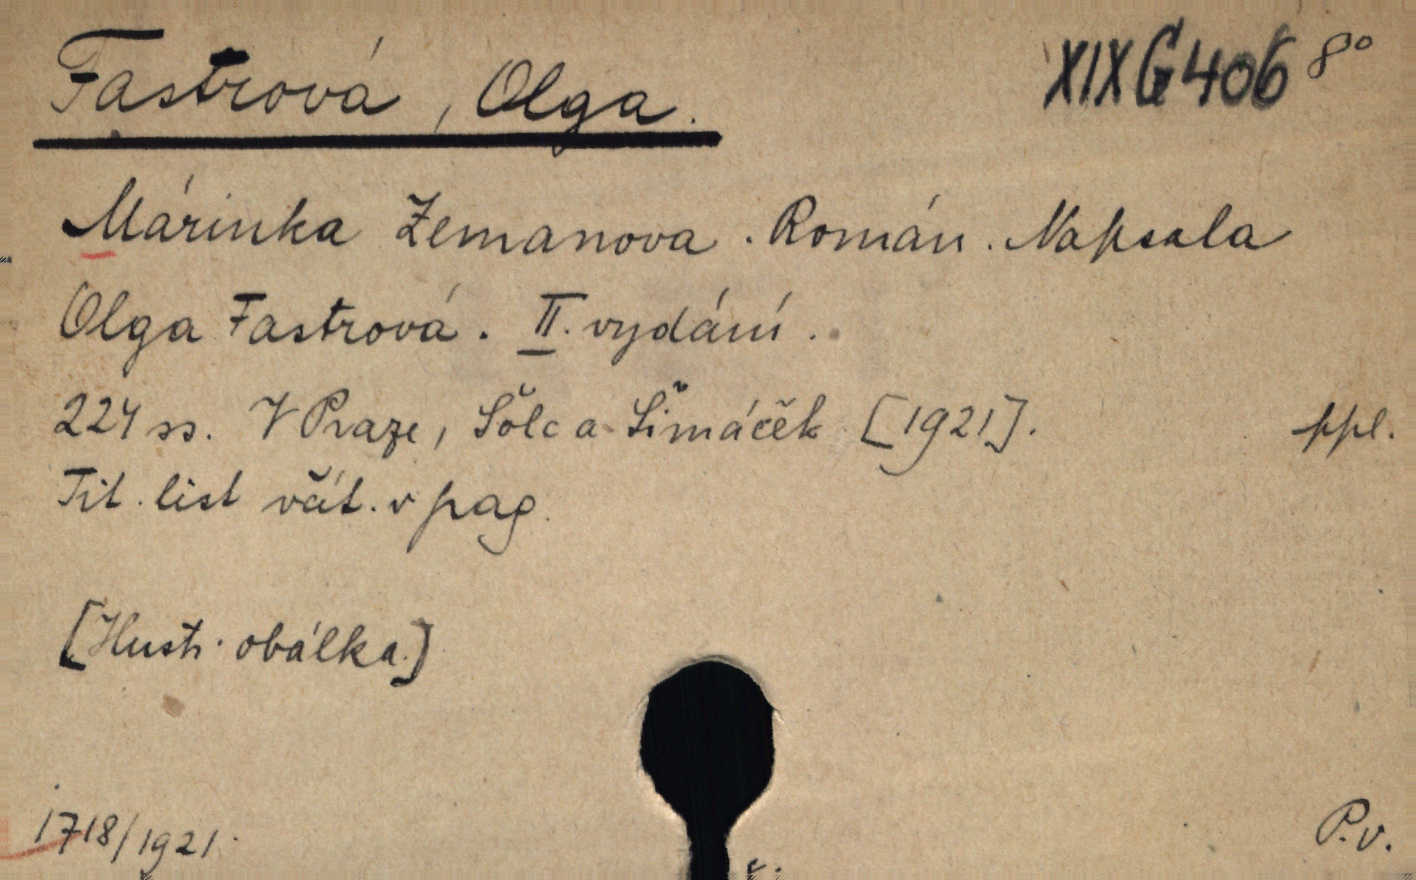 Fastrová, Olga. XIX G 406 8°
Márinka Zemanova. Román. Napsala
Olga Fastrová. II. vydání.
224 ss. V Praze, Šolc a Šimáček [1921]. ppl.
Tit. list včít. v pag.
[Ilustr. obálka.]
1718/1921.
P.v.